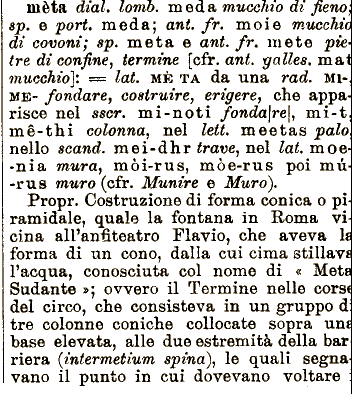 mèta dial. lomb. meda mucchio di fieno;
sp. e port. meda; ant. fr. moie mucchio
di covoni; sp. meta e ant. fr. mete pie-
tre di confine, termine [cfr. ant. galles. mat
mucchio]: = lat. MÈTA da una rad. MI-
ME- fondare, costruire, erigere, che appa-
risce nel sscr. mi-noti fonda|re|, mi-t,
mê-thi colonna, nel lett. meetas palo,
nello scand. mei-dhr trave, nel lat. moe-
-nia mura, mòi-rus, mòe-rus poi mú-
-rus muro (cfr. Munire e Muro).
Propr. Costruzione di forma conica o pi-
ramidale, quale la fontana in Roma vi-
cina all'anfiteatro Flavio, che aveva la
forma di un cono, dalla cui cima stillava
l'acqua, conosciuta col nome di « Meta
Sudante »; ovvero il Termine nelle corse
del circo, che consisteva in un gruppo di
tre colonne coniche collocate sopra una
base elevata, alle due estremità della bar-
riera (intermetium spina), le quali segna-
vano il punto in cui dovevano voltare i